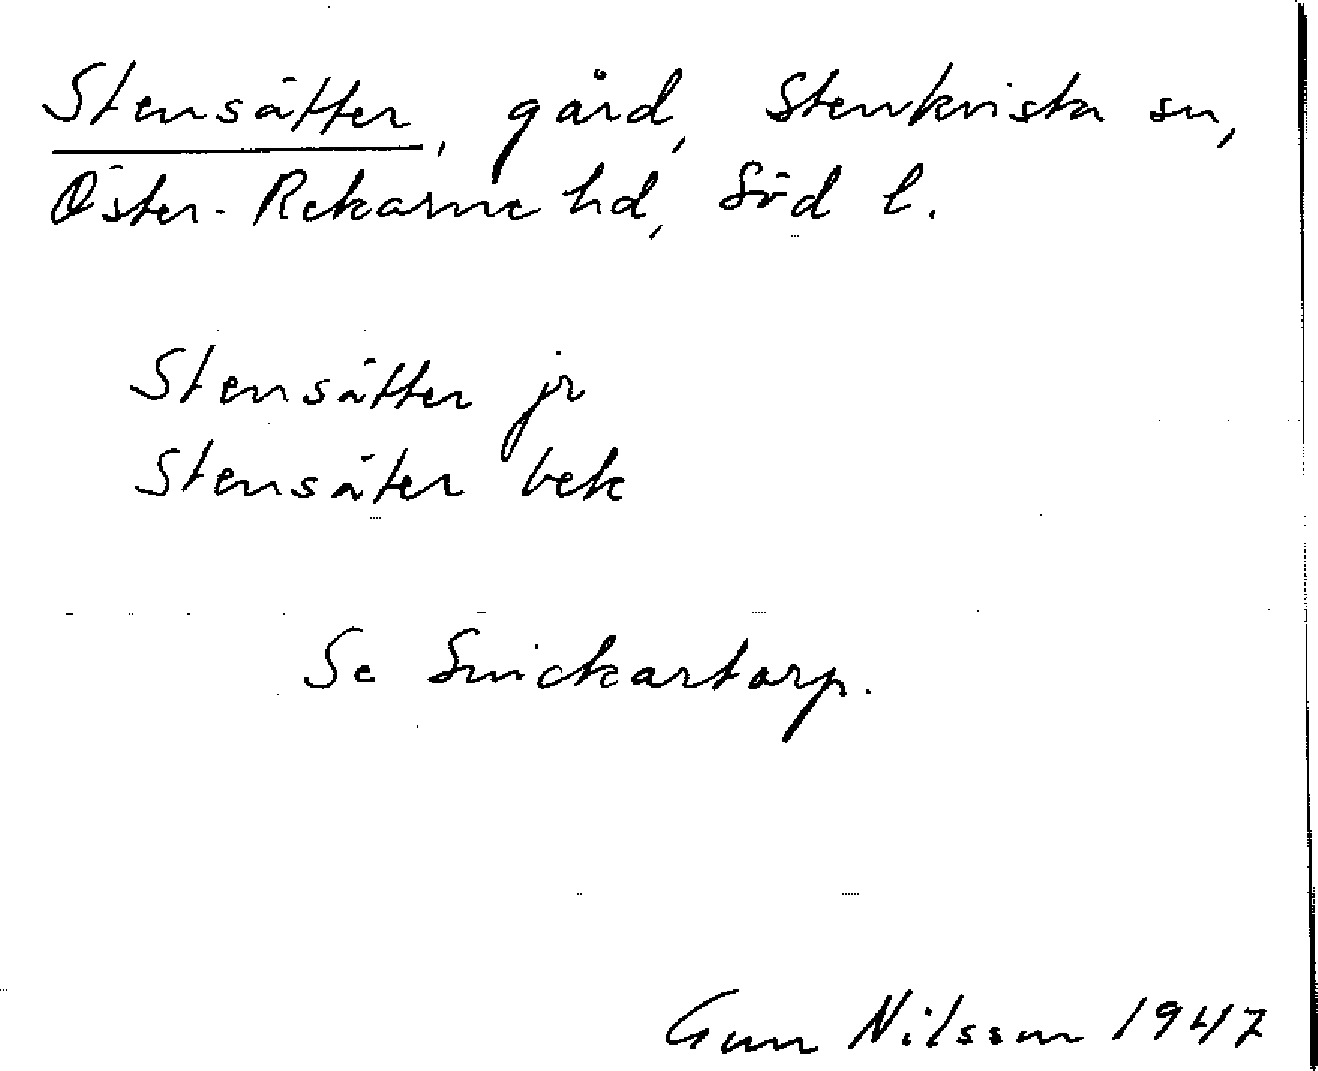 Stensätter, gård, Stenkvista sn,
Öster-Rekarne hd, Söd l.
Stensätter jr
Stensäter bek
Se Snickartorp.
Gun Nilsson 1947